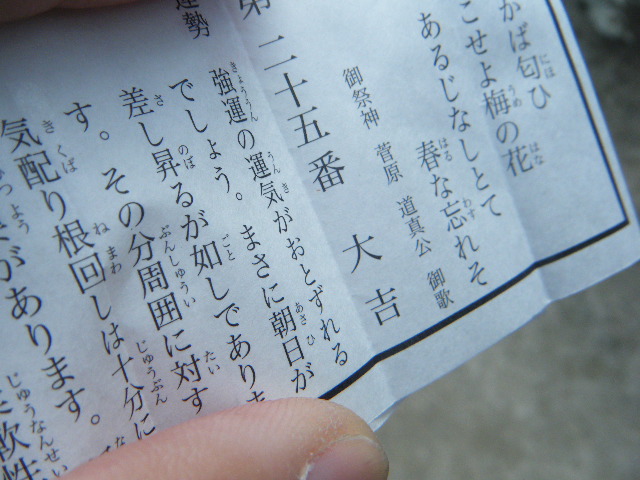 かば匂ひ
こせよ梅の花
あるじなしとて
春な忘れそ
御祭神 菅原 道真公 御歌
第二十五番 大吉
運勢
強運の運気がおとずれる
でしょう。まさに朝日が
差し昇るが如しでありま
す。その分周囲に対す
気配り根回しは十分に
があります。
柔軟性